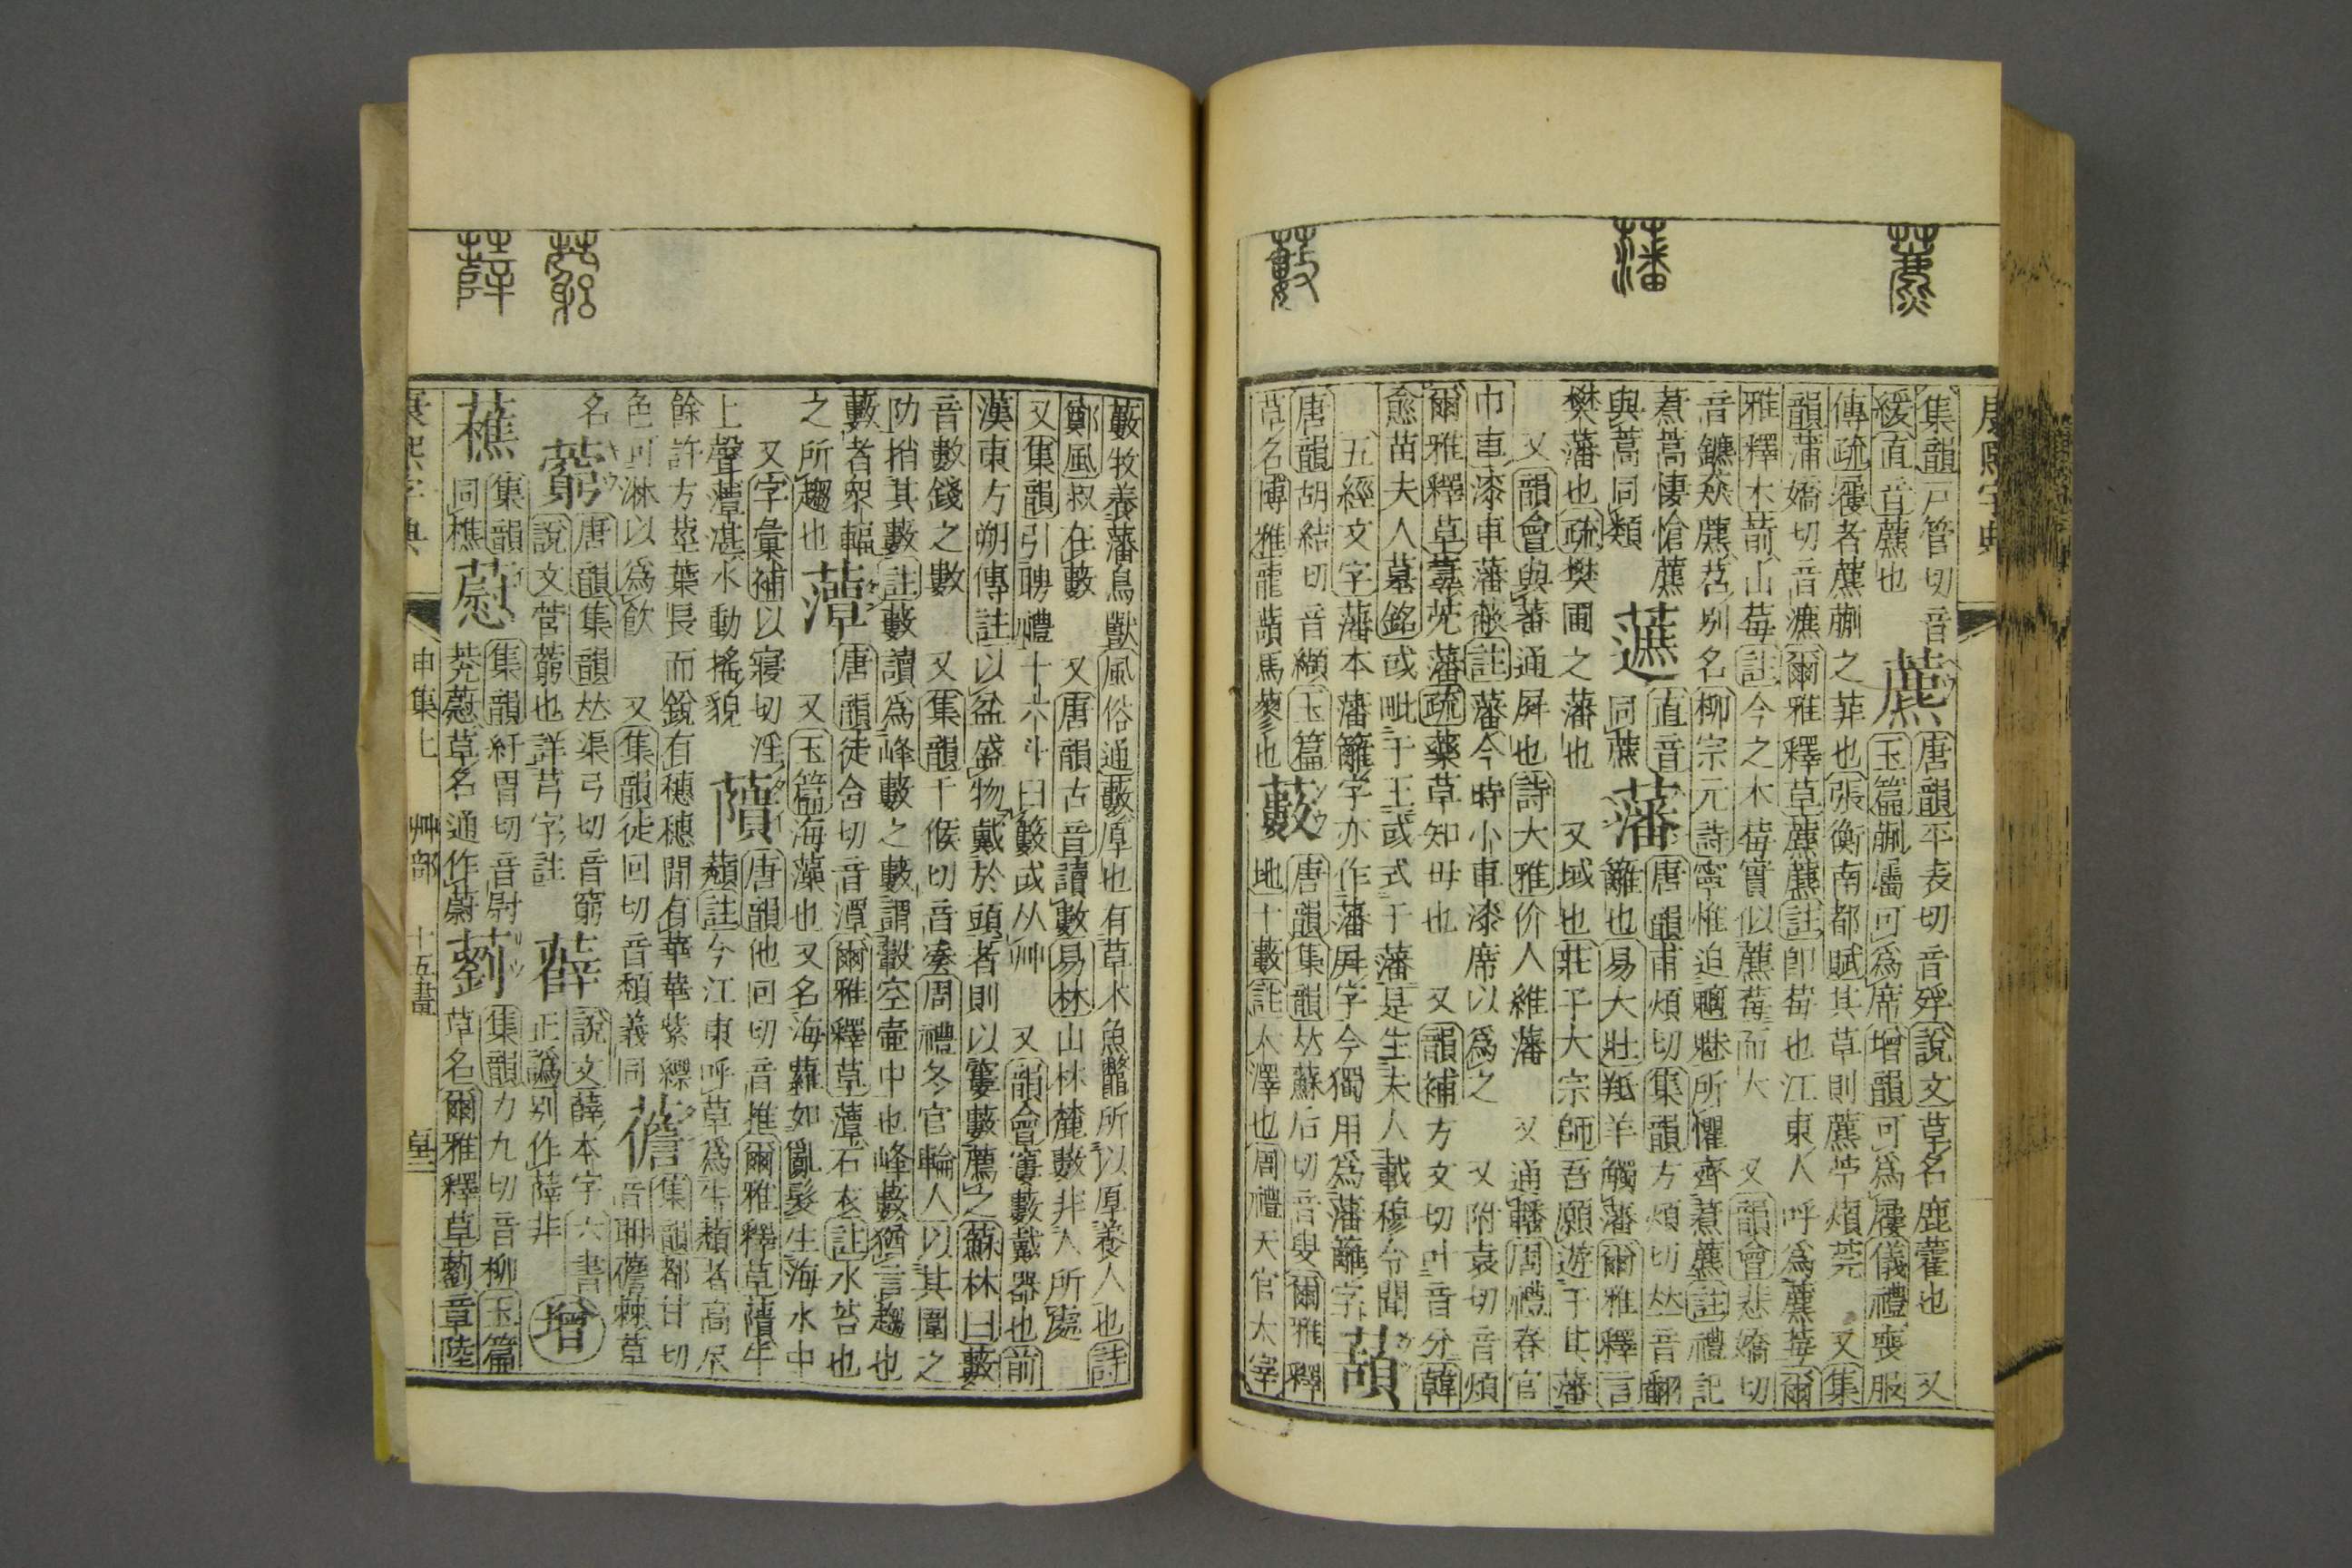 康熙字典
集韻戸管切音
緩直音藨也
藨
唐韻平表切音殍說文草名鹿藿也 又
玉篇蒯屬可爲席增韻可爲屨儀禮喪服
傳疏屨者藨蒯之菲也張衡南都賦其草則藨苧薠莞 又集
韻蒲嬌切音瀌爾雅釋草藨麃註卽莓也江東人呼爲藨莓爾
雅釋木葥山莓註今之木莓實似藨莓而大 又韻會悲嬌切
音鑣猋藨芀別名柳宗元詩寧惟迫魑魅所懼齊焄藨註禮記
焄蒿悽愴藨
與蒿同類
藘
直音
同藨
藩
唐韻甫煩切集韻方煩切𠀤音翻
籬也易大壯羝羊觸藩爾雅釋言
樊藩也疏樊圃之藩也 又域也莊子大宗師吾願遊于其藩
又韻會與蕃通屛也詩大雅价人維藩 又通轓周禮春官
巾車漆車藩蔽註藩今時小車漆席以爲之 又附袁切音煩
爾雅釋草蕁莐藩疏藥草知毋也 又韻補方文切叶音分韓
愈苗夫人墓銘或毗于王或式于藩是生夫人載穆令聞
五經文字藩本藩籬字亦作藩屛字今獨用爲藩籬字
䕣
唐韻胡結切音纈玉篇
草名博雅龍䕣馬蓼也
藪
唐韻集韻𠀤蘇后切音叟爾雅釋
地十藪註大澤也周禮天官大宰
藪牧養藩鳥獸風俗通藪厚也有草木魚鼈所以厚養人也詩
鄭風叔在藪 又唐韻古音讀數易林山林麓藪非人所處
又集韻引聘禮十六斗曰籔或从艸 又韻會寠藪戴器也前
漢東方朔傳註以盆盛物戴於頭者則以寠藪薦之蘇林曰藪
音數錢之數 又集韻千候切音湊周禮冬官輪人以其圍之
阞捎其藪註藪讀爲蜂藪之藪謂轂空壷中也蜂藪猶言趨也
藪者衆輻
之所趨也
藫
唐韻徒含切音潭爾雅釋草藫石衣註水苔也
又玉篇海藻也又名海蘿如亂髮生海水中
又字彙補以寑切淫
上聲藫湛水動搖貌
藬
唐韻他回切音推爾雅釋草藬牛
蘈註今江東呼草爲牛蘈者高尺
餘許方莖葉長而銳有穗穗閒有華華紫縹
色可淋以爲飮 又集韻徒回切音頽義同
䕊
集韻都甘切
音耼䕊棘草
名
藭
唐韻集韻𠀤渠弓切音窮
說文营藭也詳芎字註
薛
說文薛本字六書
正譌別作薩非
增
蕉
集韻
同樵
藯
集韻紆胃切音尉玉篇
茺藯草名通作蔚
藰
集韻力九切音柳玉篇
草名爾雅釋草藰章陸
康熙字典
申集上
艸部
十五畫